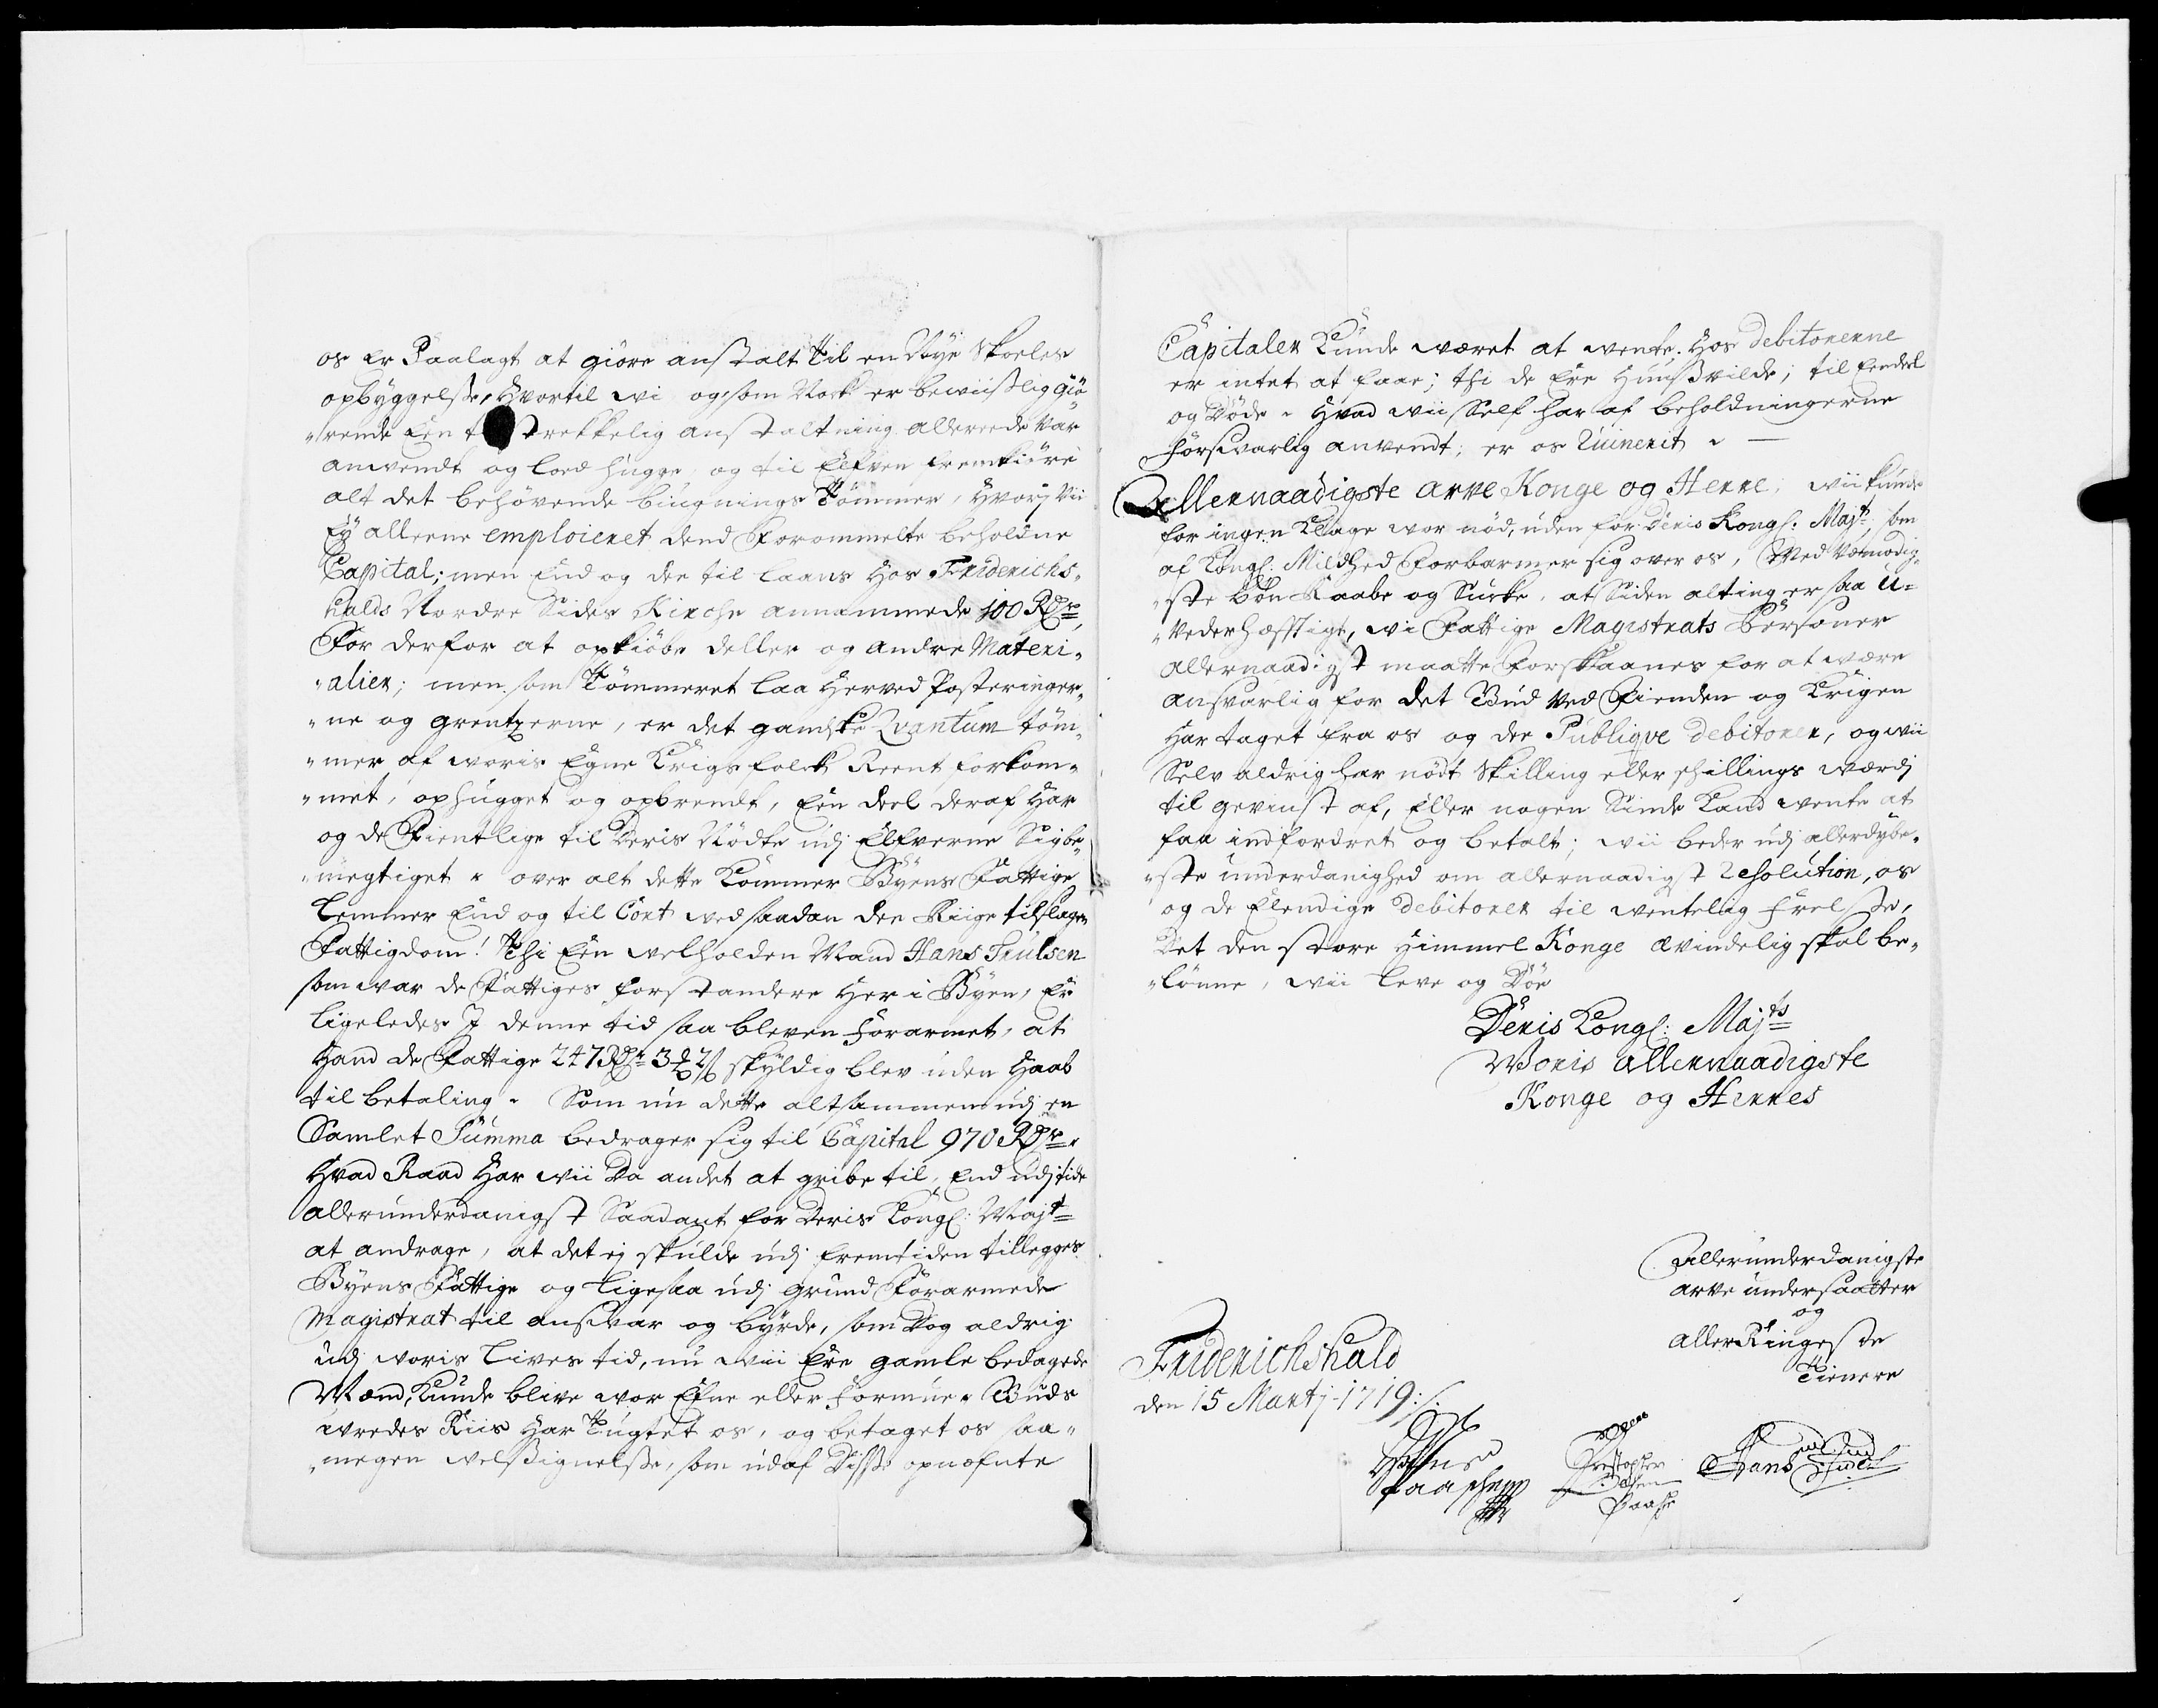 os er Paalagt at giöre anstalt til en Nÿe Skoeles
opbyggelsse, Hvortil wi og som Nock er bewiißlig giö¬
„rende een t strekkelig anstaltning allereede var
anvendt og loed hugge og til Elfven fremkiöre
alt det behövende bŭgnings Tömmer, Hvorj Vii
Eÿ alleene emploieret dend Forommelte beholdne
Capital; men End og der til laans hos Friderichs¬
halds Nordre Sides Kirche annammede 100 Rdr
For derfor at opkiöbe deller og andre Materi¬
„alier; men som Tömmeret laa Herved Posteringer¬
„ne og grentzerne, er det gandske Qvantum töm¬
„mer af woris Egne Krigsfolck Reent forkom¬
„met, ophugget og opbrendt, Een deel deraf Har
og de Fientlige til deris Nödte udj Elfverne Sig be¬
„megtiget. over alt dette kommer Bÿens Fattige
Lemmer End og til Cort ved saadan der Kiige tilslagen
Fattigdom! Thi Een welholden Mand Hans Trulsen
som var de Fattiges forstandere Her i Bÿen, Er
ligeledes I denne tid saa bleven Forarmet, at
Hand de Fattige 247 Rdr 3 ß skyldig blev uden Haab
til betaling. Som nu dette altsammen udj en
Samlet Summa bedrager sig til Capital 970 Rdr.
Hvad Raad Har wii Da andet at gribe til, End udj tide
allerunderdanigst Saadant for deris Kongl: Majt
at andrage, at det ej skulde udj fremtiden tillegges
Bÿens Fattige og ligesaa udj grund Forarmede
Magistrat til ansvar og bÿrde, som Dog aldrig
udj woris Lives tid, nu wii Ere gamle bedagede
Mænd, Kunde blive vor Efne eller Formue. Guds
wredes Riis Har Tugtet os, og betaget os saa
„megen velsignelsse, som udaf Disse opnefnte
Capitaler Kunde været at vente. Hos debitorerne
er intet at faae; thi de Ere Huußvilde, til Eendeel
og Döde. Hvad wii Self har af beholdningerne
Forsvarlig anvendt, er os Ruinerit.
Allernaadigste Arve Konge og Herre, wii kunde
for ingen Klage vor nöd, uden for Deris Kongl: Majt, som
af Kongl: Mildhed Forbarmer sig over os, Med ydmÿdig¬
„ste bön Raabe og Sucke, at Siden alting er saa u¬
„vederhæfftigt, wi Fattige Magistrats Personer
allernaadigst maatte Forskaanes for at være
ansvarlig for det Gud ved Fienden og Krigen
Har taget fra os og der Publiqve debitorer, og wii
Selv aldrig har nödt Skilling eller skillings værdj
til gevinst af, Eller nogen Sinde Kand vente at
faa indfordret og betalt; wii beder udj allerdÿbe¬
„ste underdanighed om allernaadigst Resolution, os
og de Elendige debitorer til ventelig Frelsse,
Det den store Himmel Konge Ævindelig skal be¬
„lönne, wii leve og Döe
Deris Kongl: Majts
Woris Allernaadigste
Konge og Herres
Allerunderdanigste
arve undersaatter
og
aller Ringeste
Tienere
Friderichshald
den 15 Martj 1719
Paasche
Christopher
Paasche
Hans